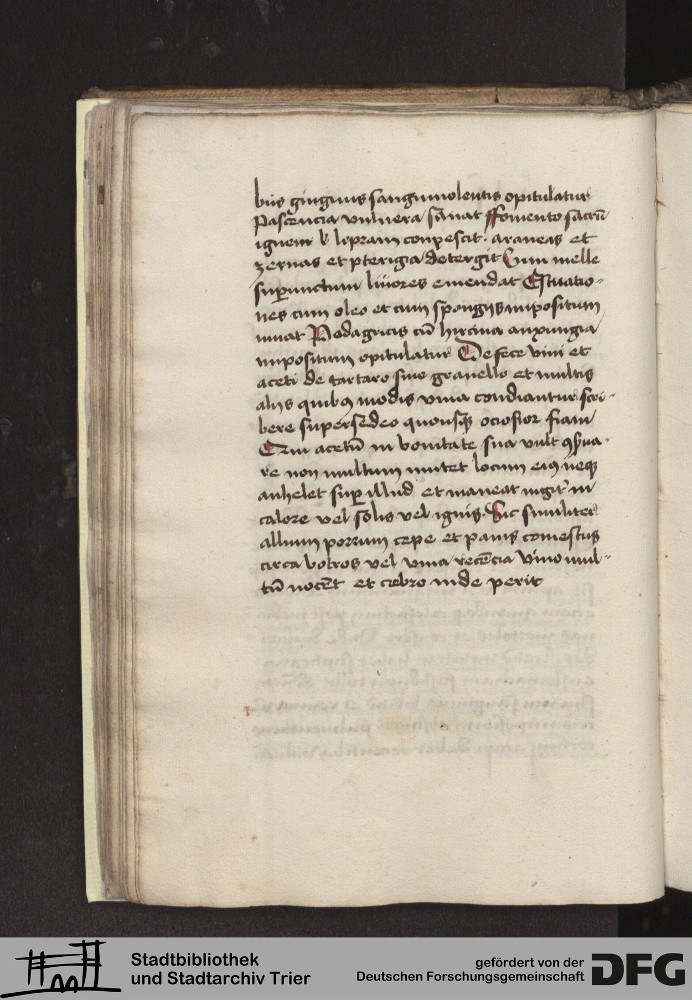 bus gingiuis sanguinolentis opitulatur
Pascencia vulnera sanat ffomento sacru
ignem l lepram conpescit. araneas et
zernas et pterigia detergit Cum melle
superunctum liuores emendat Estuatio-
nes cum oleo et cum spongijs inpositum
iuuat Pedagricis cu hircina anxungia
inpositum opitulatur De fece vini et
aceti de tartaro siue grauello et multis
alijs quibus modis vina condiantur scri-
bere supersedeo quousque ociosior fiam
Cum acetu in bonitate sua vult conserua-
re non multum mutet locum eius neque
anhelet super illud et maneat iugiter in
calore vel solis vel ignis. Sic similiter
allium porrum cepe et panis comestus
circa botros vel vina recencia vino mul-
tu nocent et crebro inde perit
Stadtbibliothek
und Stadtarchiv Trier
gefördert von der
Deutschen Forschungsgemeinschaft
DFG